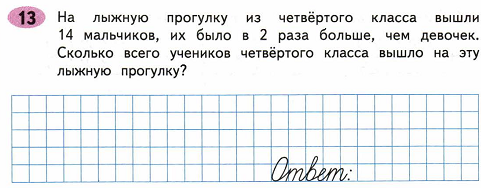 13 На лыжную прогулку из четвёртого класса вышли
14 мальчиков, их было в 2 раза больше, чем девочек.
Сколько всего учеников четвёртого класса вышло на эту
лыжную прогулку?
Ответ: